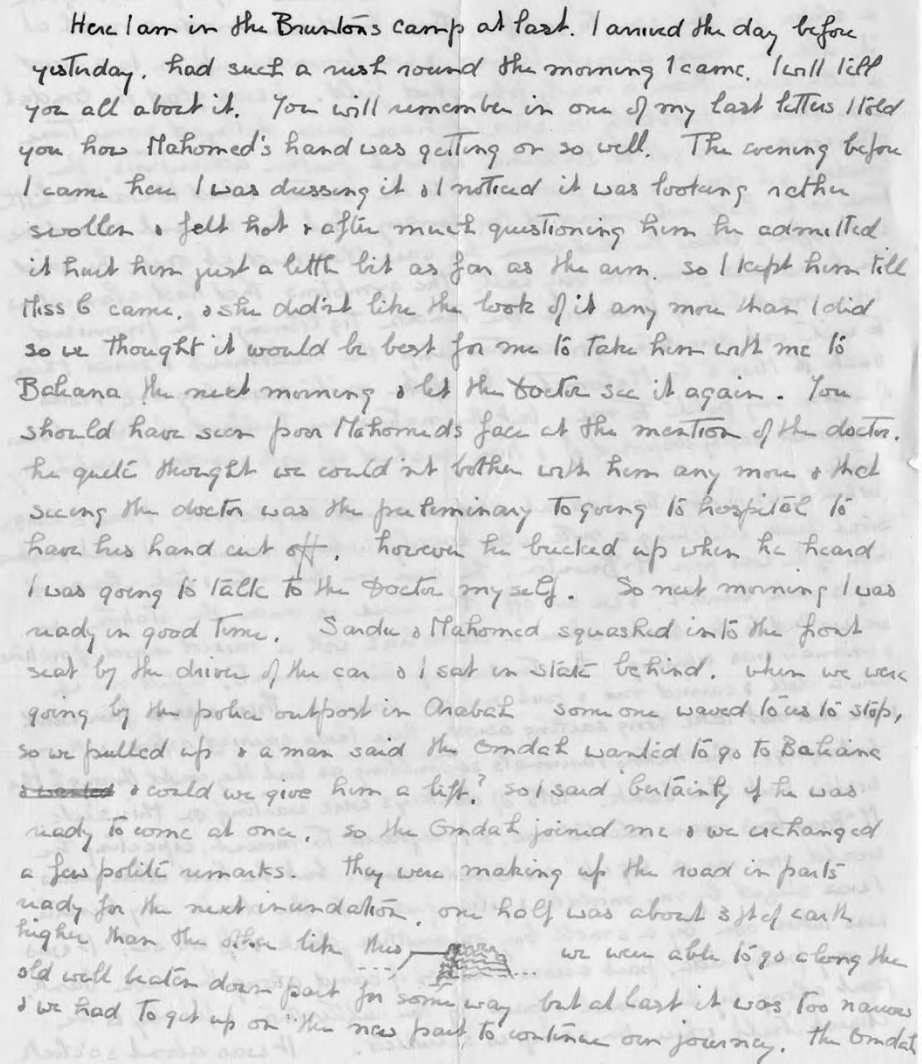 Here I am in the Bruntons camp at last. I arrived the day before
yesterday, had such a rush round the morning I came. I will tell
you all about it. You will remember in one of my last letters I told
you how Mahomed's hand was getting on so well. The evening before
I came here I was dressing it & I noticed it was looking rather
swollen & felt hot & after much questioning him he admitted
it hurt him just a little bit as far as the arm. so I kept him till
Miss C came, & she didn't like the look of it any more than I did
so we thought it would be best for me to take him with me to
Baliana the next morning & let the Doctor see it again. You
should have seen poor Mahomeds face at the mention of the doctor.
he quite thought we couldn't bother with him any more & that
seeing the doctor was the preliminary to going to hospital to
have his hand cut off. however he bucked up when he heard
I was going to talk to the Doctor myself. So next morning I was
ready in good time. Sardu & Mahomed squashed into the front
seat by the driver of the car & I sat in state behind. when we were
going by the police outpost in Arabah some one waved to us to stop,
so we pulled up & a man said the Omdah wanted to go to Baliana
& could we give him a lift? so I said certainly if he was
ready to come at once. so the Omdah joined me & we exchanged
a few polite remarks. they were making up the road in parts
ready for the next inundation, one half was about 3 ft of earth
higher than the other like this we were able to go along the
old well beaten down part for some way but at last it was too narrow
& we had to get up on the new part to continue our journey. the Omdah